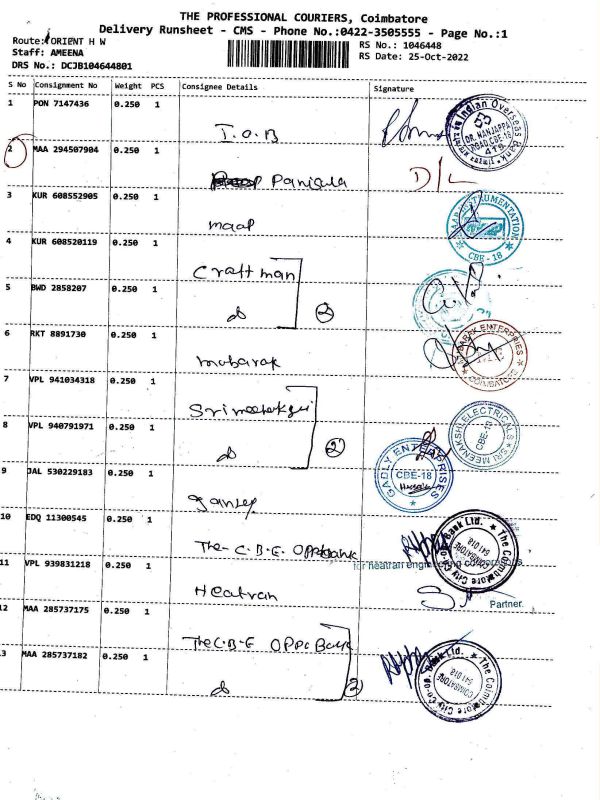 THE PROFESSIONAL COURIERS, Coimbatore
Delivery Runsheet - CMS - Phone No.:0422-3505555 - Page No.:1
Route: ORIENT H W
Staff: AMEENA
DRS No.: DCJB104644801
RS No.: 1046448
RS Date: 25-Oct-2022
S No Consignment No Weight PCS Consignee Details Signature
1 PON 7147436 0.250 1
I.O.B
Indian Overseas Bank
DR. NANJAPPA
ROAD CBE-18
2 MAA 294507904 0.250 1
D/L
3 KUR 608552905 0.250 1
maap
INSTRUMENTATION
CBE - 18
4 KUR 608520119 0.250 1
Craftman
5 BWD 2858207 0.250 1
2
6 RKT 8891730 0.250 1
mubarak
ENTERPRIES
COIMBATORE
7 VPL 941034318 0.250 1
8 VPL 940791971 0.250 1
2
SRI MEENAKSHI ELECTRICALS
CBE-18
9 JAL 530229183 0.250 1
GADLY ENTERPRISES
CBE-18
10 EDQ 11300545 0.250 1
The C.B.E. Oppbank
The Coimbatore City Co-op. Bank Ltd.
COIMBATORE
641 018
11 VPL 939831218 0.250 1
for heatran engineering
Heatran
Partner.
12 MAA 285737175 0.250 1
The C.B.E OPPC Bank
13 MAA 285737182 0.250 1
2
The Coimbatore City Co-op. Bank Ltd.
COIMBATORE
641 018